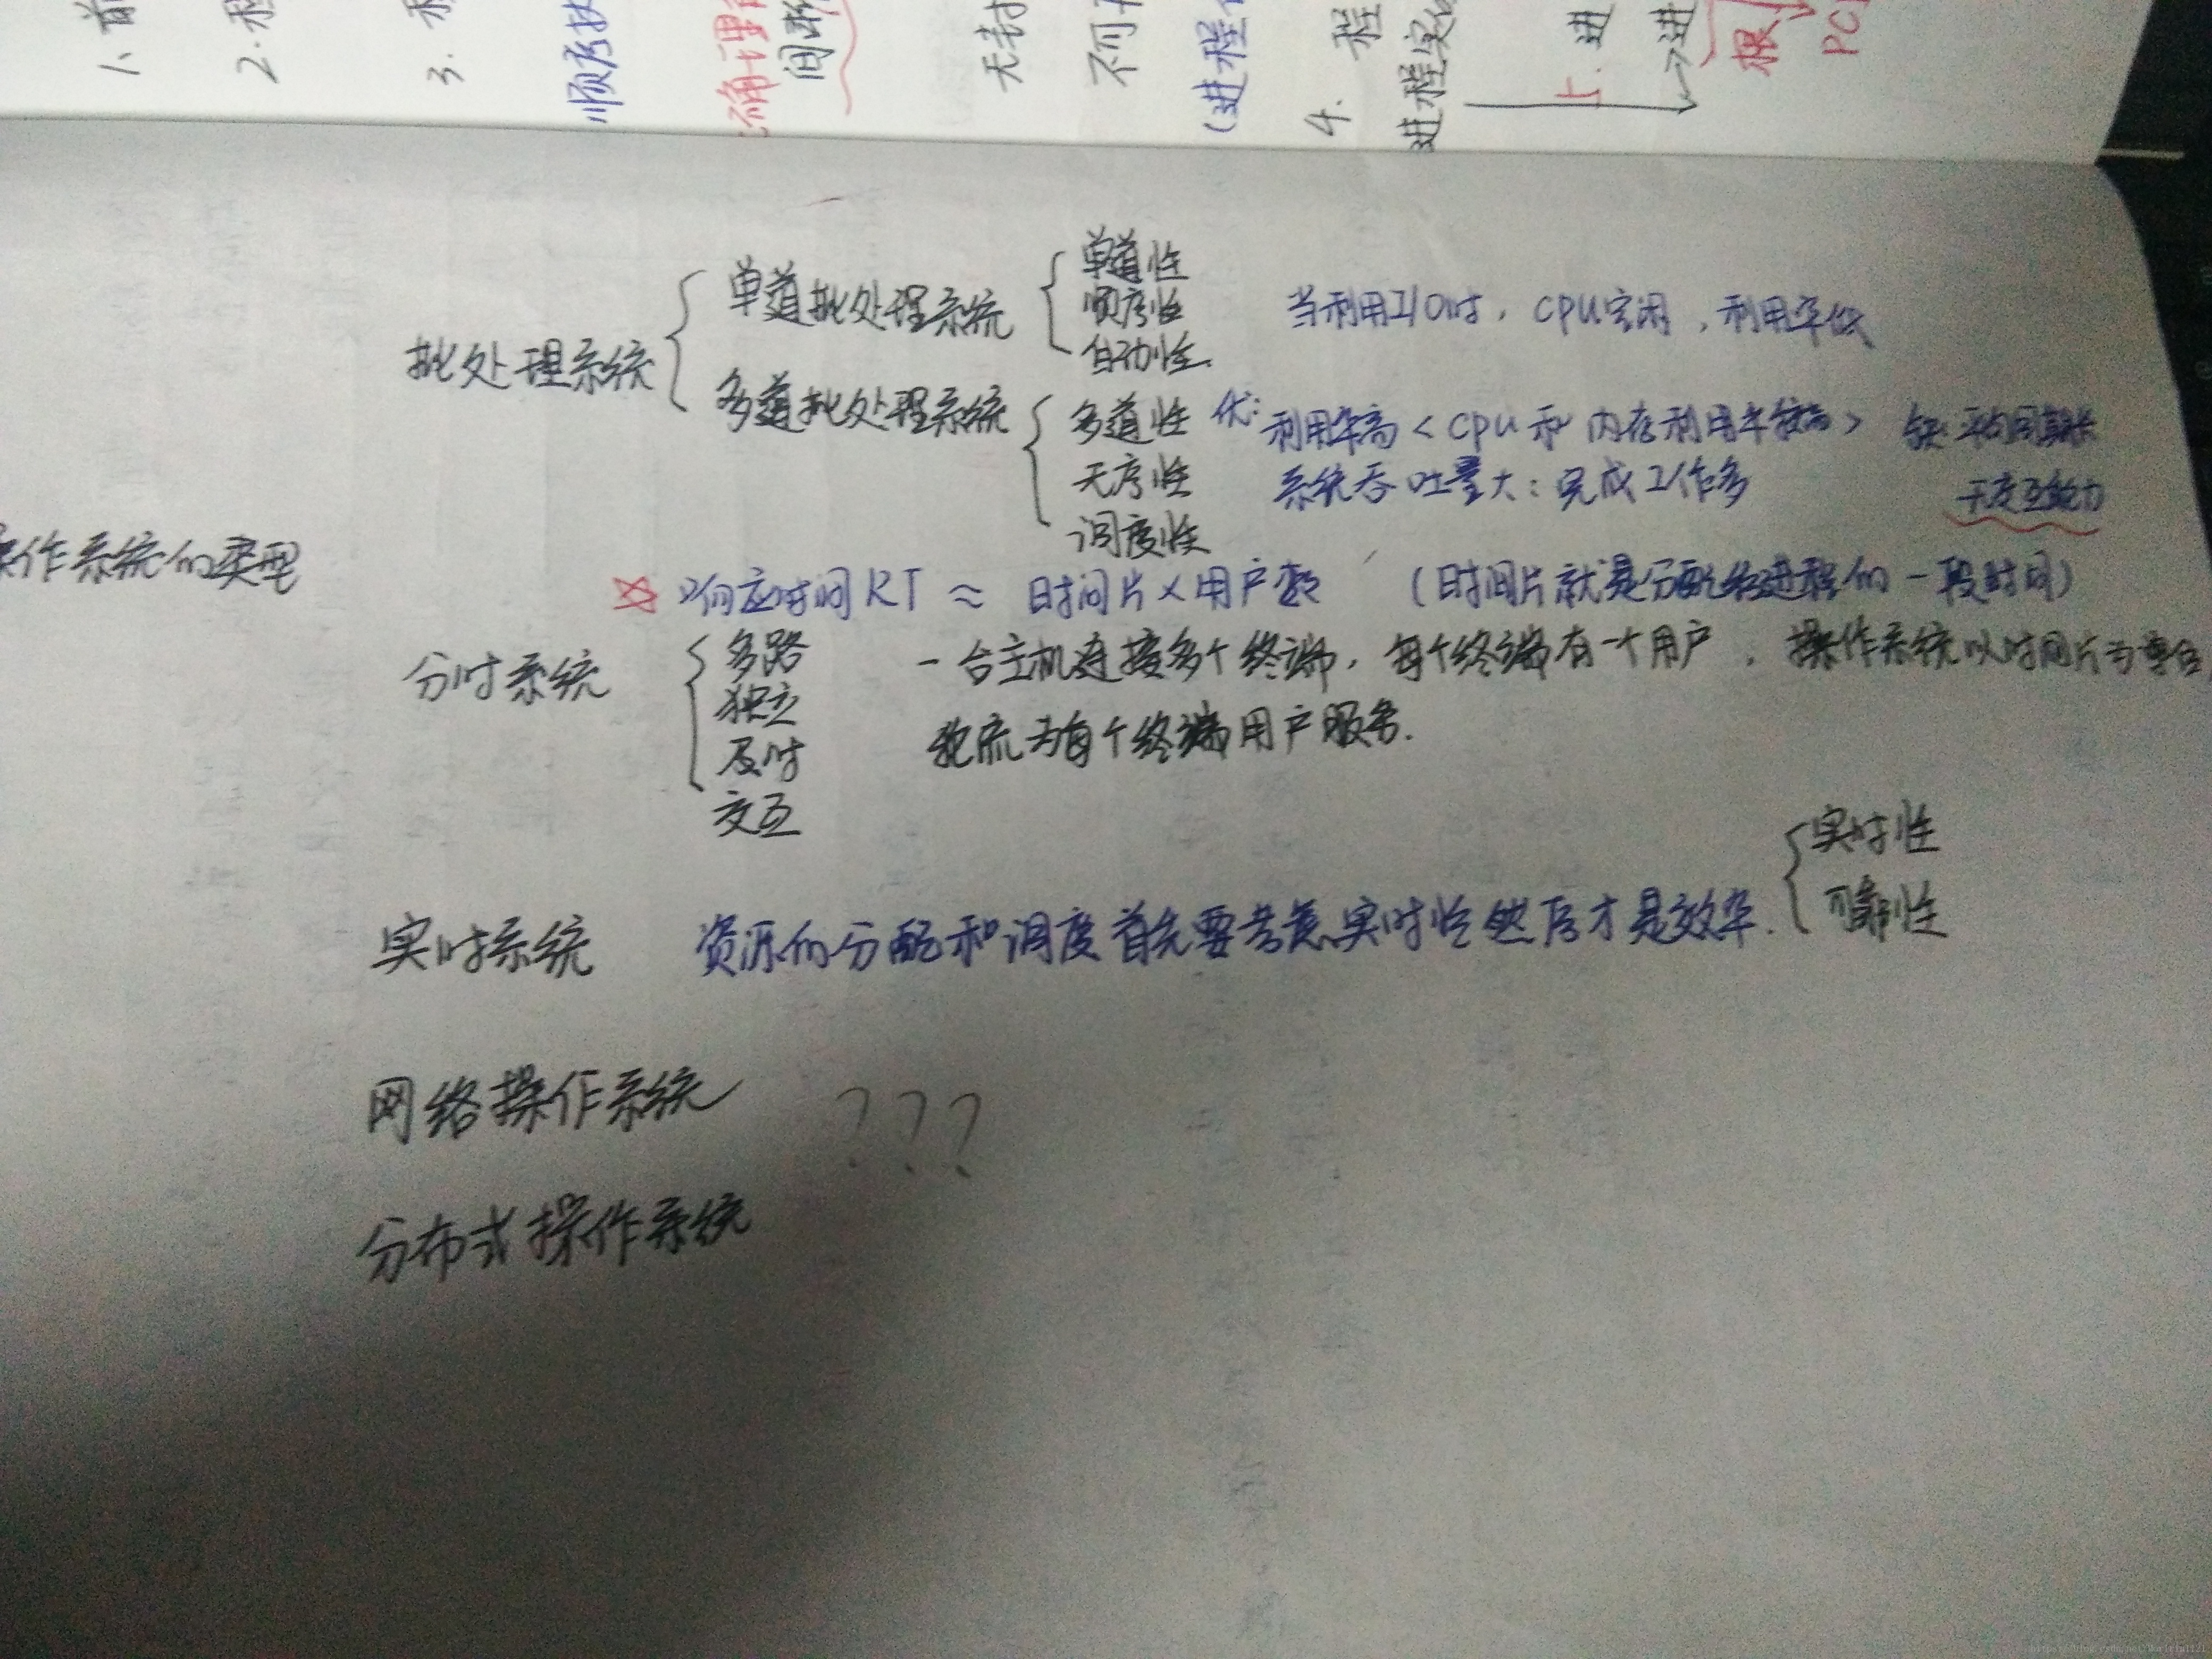 1、前
2.程
3.
顺序执
确 理
间断
无封
不可
(进程
4. 程
进程实
上.进
→进
根
PC
操作系统的类型
批处理系统
单道批处理系统
单道性
顺序性
自动性.
当利用I/O时，CPU空闲，利用率低
多道批处理系统
多道性
无序性
调度性
优: 利用率高<CPU和内存利用率较高>
系统吞吐量大：完成工作多
缺:平均周期长
无交互能力
响应时间RT ≈ 时间片×用户数 (时间片就是分配给进程的一段时间)
分时系统
多路
独立
及时
交互
一台主机连接多个终端，每个终端有一个用户，操作系统以时间片为单位
轮流为每个终端用户服务.
实时系统 资源的分配和调度首先要考虑实时性然后才是效率.
实时性
可靠性
网络操作系统 ???
分布式操作系统